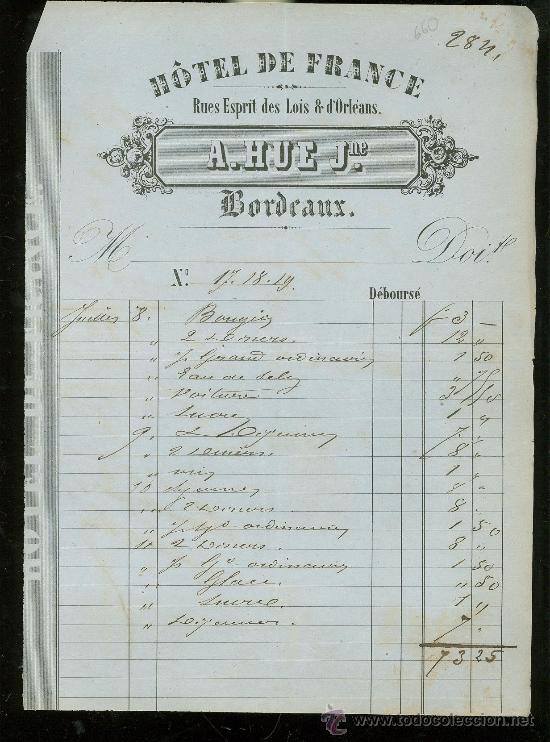 660
284,
HÔTEL DE FRANCE
Rues Esprit des Lois & d'Orléans.
A. HUE Jne.
Bordeaux.
M Doit
No. 17. 18. 19.
Déboursé
Juillet 8. Bougies f. 3 —
" 2 Diners. 12 "
" Grand ordinaire 1 50
" Eau de Selz " 75
" Voiture 3
" Sucre 1 "
9. 2 Déjeuners 7 "
" 2 Diners. 8 "
" 1 "
10 Déjeuner 7 "
" 2 Diners. 8 "
" Gd ordinaire 1 50
" 2 Diners. 8 "
" Gd ordinaire 1 50
" Glace. " 50
" Sucre. 1 "
" Déjeuner 7 "
73 25
© www.todocoleccion.net